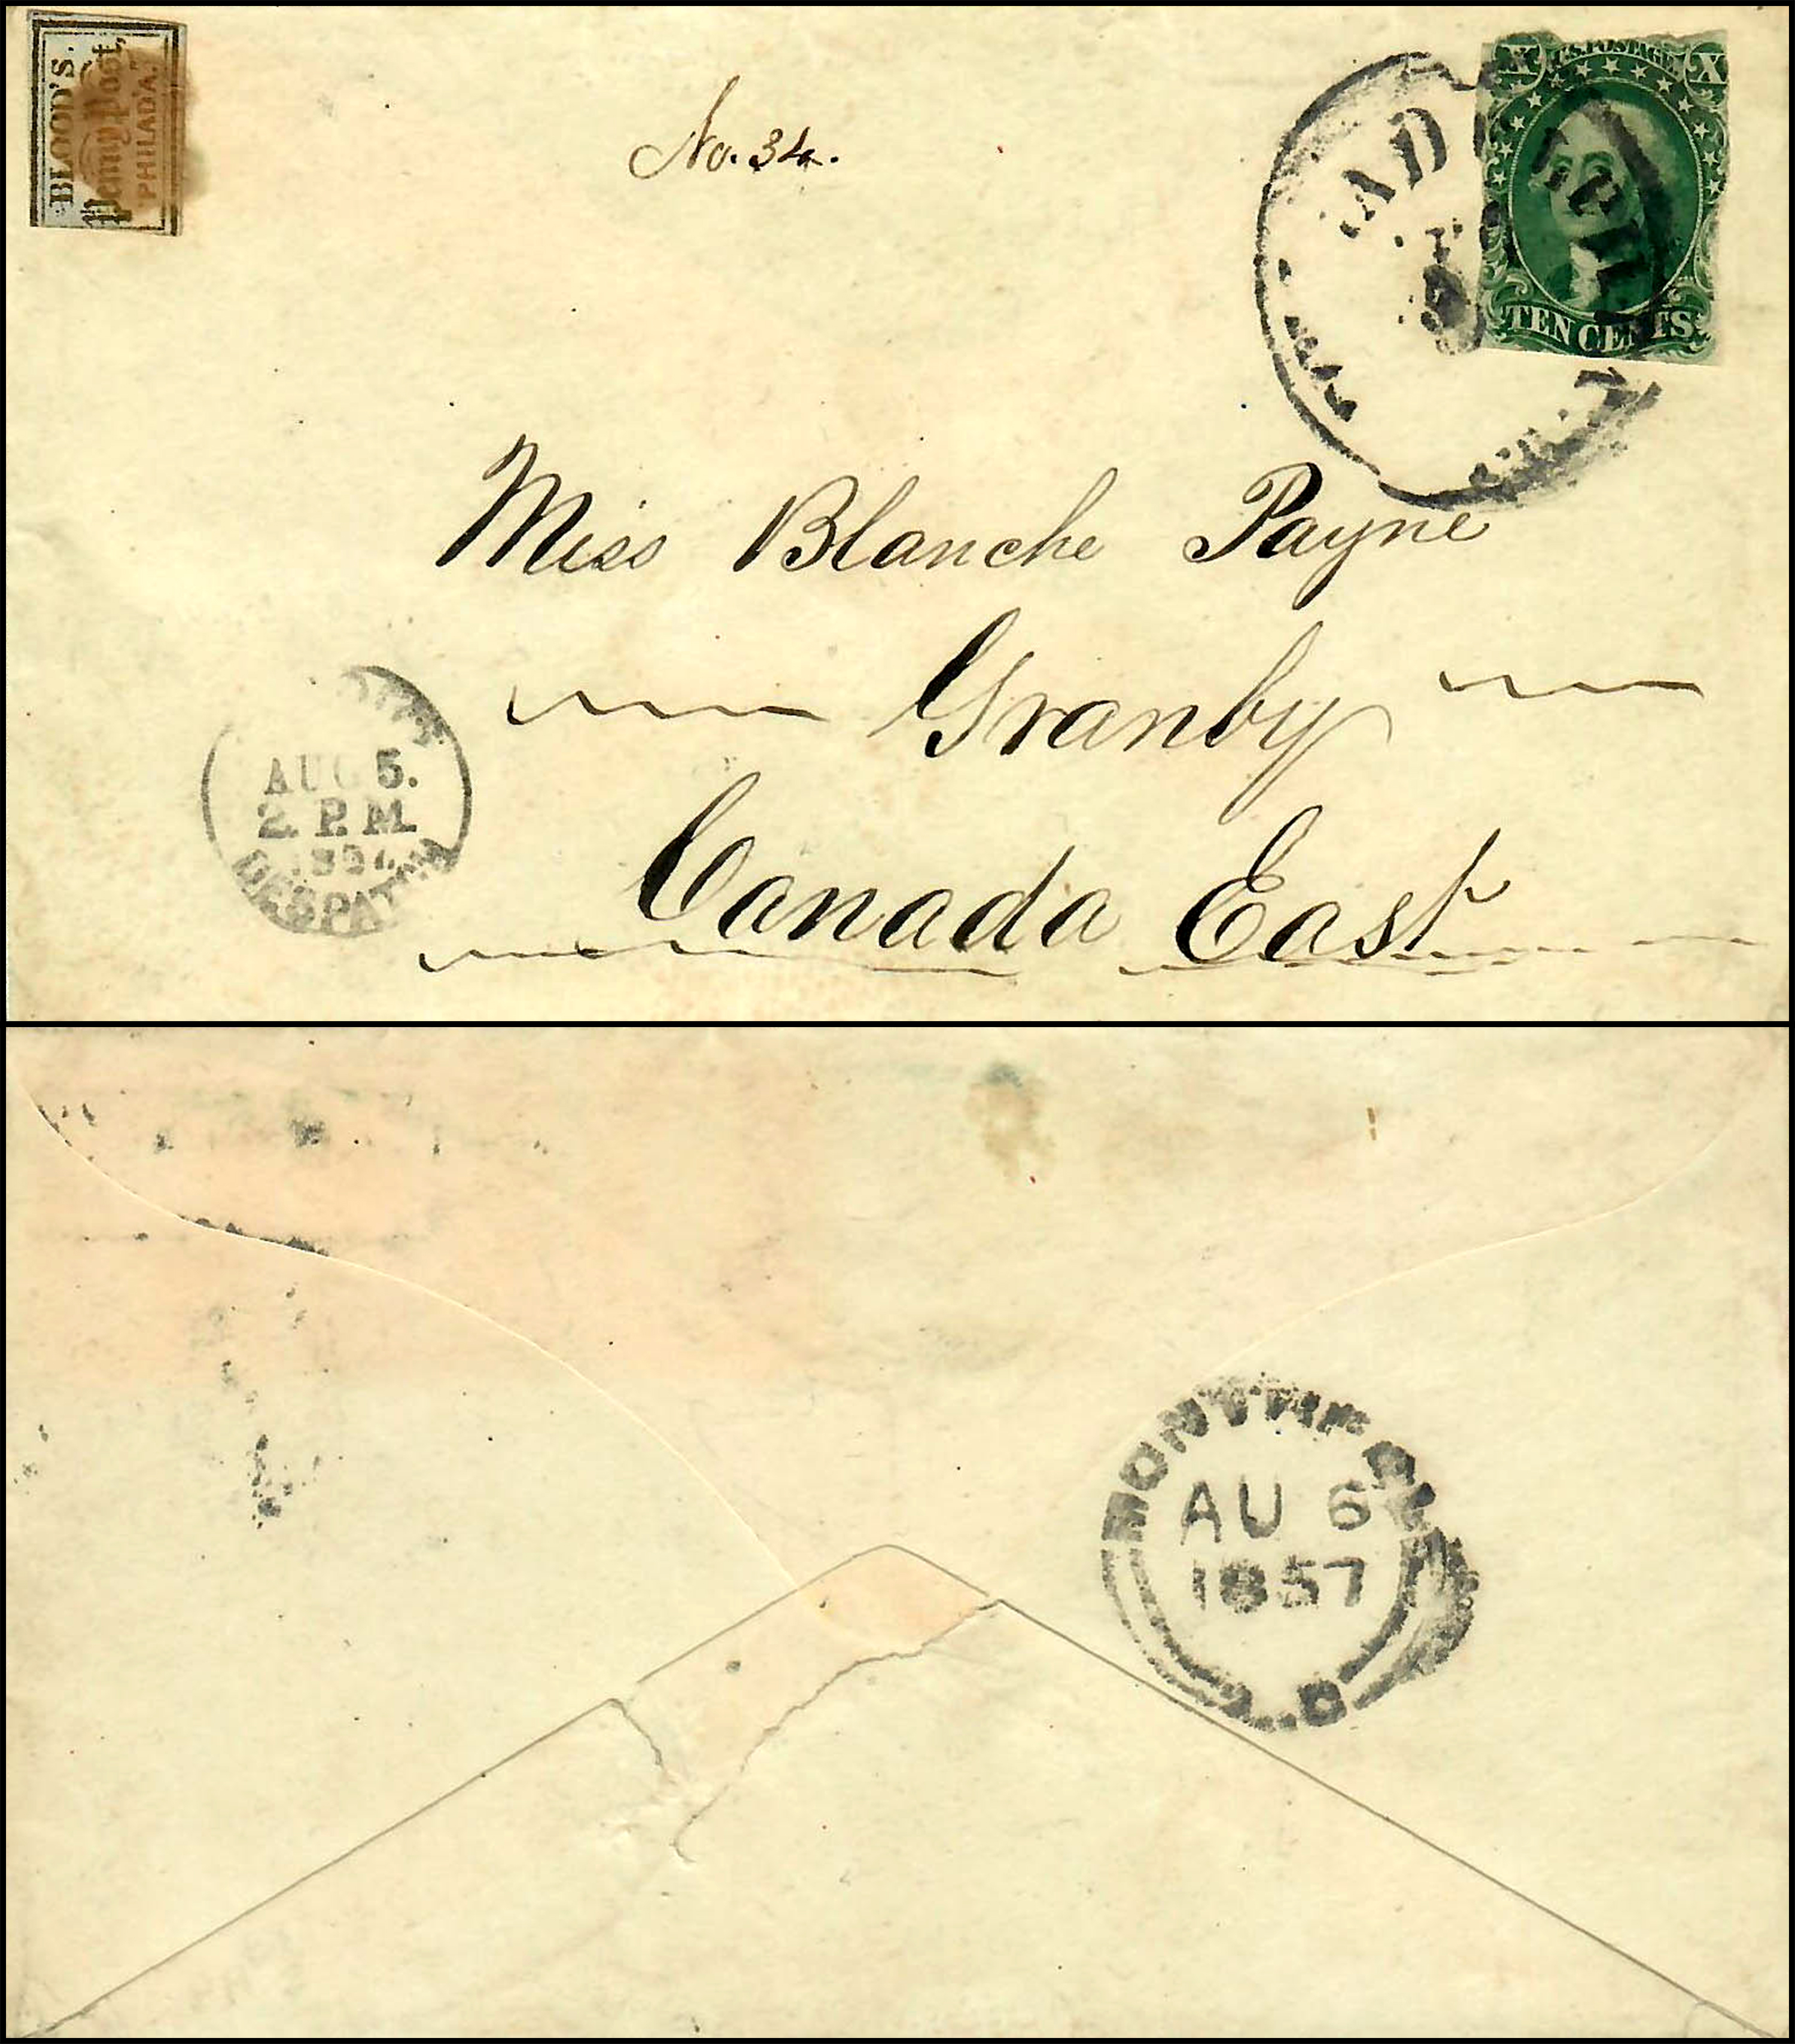 BLOOD'S
Penny Post,
PHILADA.
No. 34.
U.S. POSTAGE
X X
TEN CENTS
Miss Blanche Payne
Granby
Canada East
AUG 5.
2 P.M.
DESPATCH
MONTREAL
AU 6
1857